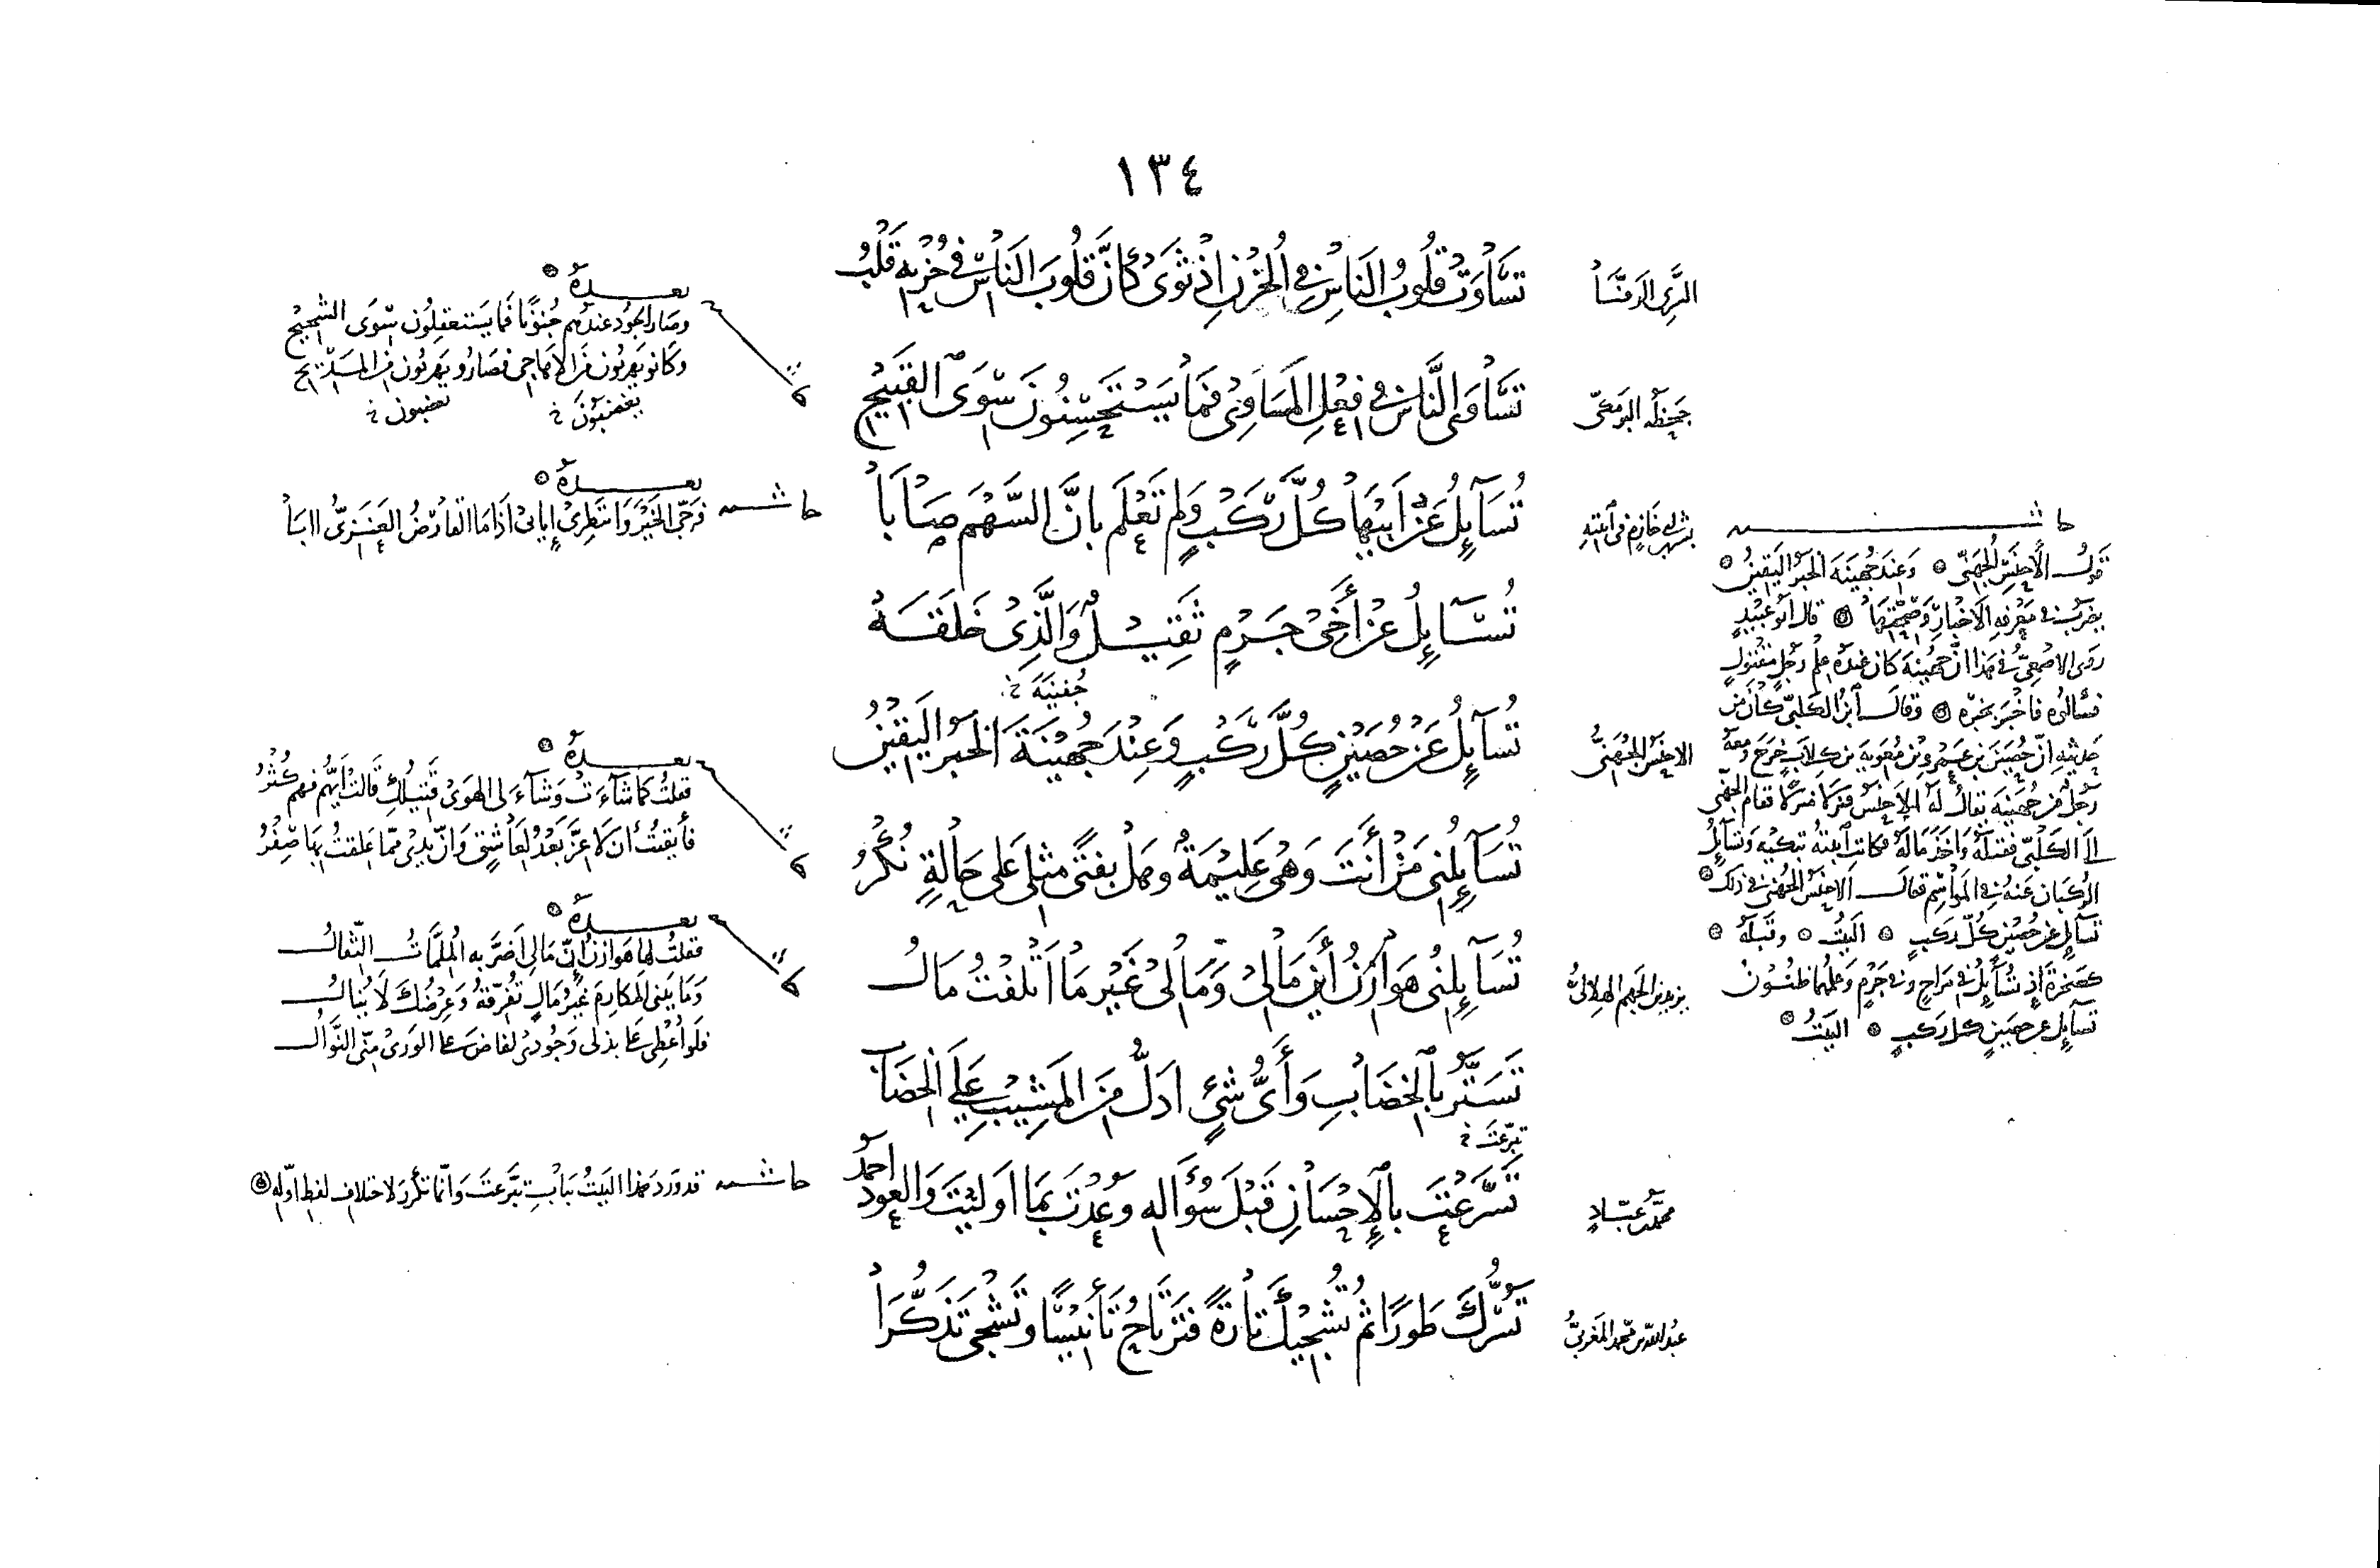 ١٣٤
السري الرفا
تساوت قلوب الناس في الحزن إذ ثوى كأن قلوب الناس في حزنه قلب
جحظة البرمكي
تساوى الناس في فعل المساوئ فما يستحسنون سوى القبيح
بعده
وصار الجود عندهم جنونا فما يستعقلون سوى الشحيح
وكانو يهربون من الاهاجي فصارو يهربون من المديح
يغضبون
بشر بن أبي خازم في ابنته
تسائل عن أبيها كل ركب ولم تعلم بان السهم صابا
حاشية
بعده
فرجي الخير وانتظري إيابي اذا ما القارض العنزي اابا
تسائل عن أخي جرم ثقيل والذي خلقه
جفينة خ
الاخنس الجهني
تسائل عن حصين كل ركب وعند جهينة الخبر اليقين
حاشية
قول الاخنس الجهني وعند جهينة الخبر اليقين
يضرب في معرفة الاخبار وصحتها قال ابو عبيد
روى الاصمعي في هذا ان جهينة كان عنده علم رجل مقتول
فسألوه فاخبر بخبره وقال ابن الكلبي كان من
حديثه ان حصين بن عمرو بن معوية بن كلاب خرج ومعه
رجل من جهينة يقال له الاخنس فنزلا منزلا فقام الجهني
الى الكلبي فقتله واخذ ماله وكانت ابنته تبكيه وتسائل
الركبان عنه في المواسم فقال الاخنس الجهني في ذلك
تسائل عن حصين كل ركب البيت وقبله
كصخرة إذ تسائل في مراح وفي جرم وعلمهما ظنون
تسائل عن حصين كل ركب البيت
تسائلني من أنت وهي عليمة وهل بفتى مثلي على حالة نكر
بعده
فقلت كما شاءت وشاء لها الهوى قتيلك قالت أيهم فهم كثر
فأيقنت أن لا عز بعدي لعاشق وان يدي مما علقت بها صفر
يزيد بن الجهم الهلالي
تسائلني هوازن أين مالي وما لي غير ما اتلفت مال
بعده
فقلت لها هوازن إن مالي اضر به الملمات الثقال
وما يبني المكارم غير مال تفرقه وعرضك لا ينال
تستر بالخضاب وأي شيء ادل من المشيب على الخضاب
تبرعت خ
محمد بن عباد
تسرعت بالإحسان قبل سؤاله وعدت بما اوليت والعود احمد
حاشية قد ورد هذا البيت بباب تبرعت وانما تكرر لاختلاف لفظ اوله
عبد الله بن محمد المغربي
تسرك طورا ثم تشجيك تارة فترتاح تأنيسا وتشجى تذكرا